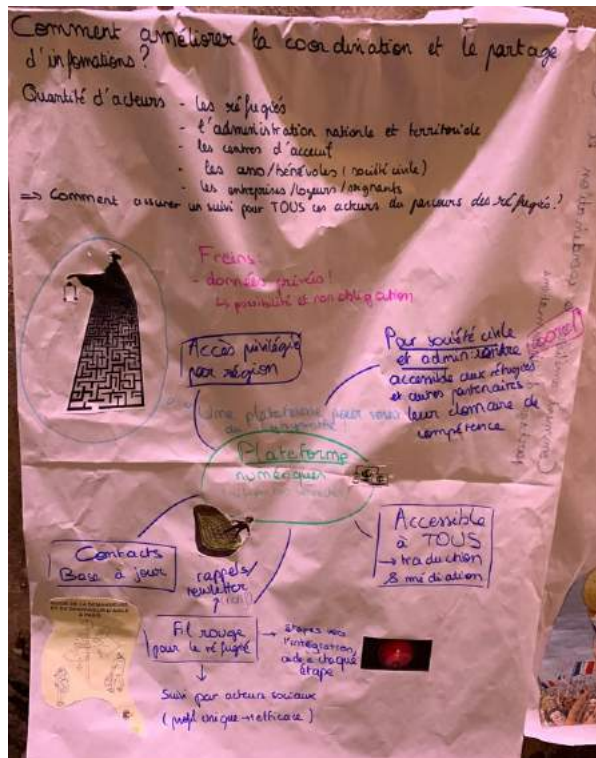 Comment améliorer la coordination et le partage
d'infomations ?
Quantité d'acteurs - les réfugiés
- l'administration nationale et territoriale
- les centres d'acceuil
- les asso/bénévoles (société civile)
- les entreprises/loyeurs/soignants
=> Comment assurer un suivi pour TOUS ces acteurs du parcours des réfugiés ?
Freins:
- données privés !
↳ possibilité et non obligation
Accès privilégié
par région
Pour société civile
et administration
accessible aux réfugiés
et autres partenaires
leur domaine de
compétence
Une plateforme pour sortir
du labyrinthe !
Plateforme
numérique
Contacts
Base à jour
rappels/
newsletter
Accessible
à TOUS
→ traduction
& médiation
Fil rouge
pour le réfugié
→ étapes vers
l'intégration,
aide à chaque
étape
Suivi par acteurs sociaux
(profil unique → efficace)
GUIDE DE LA DEMANDEUSE
ET DU DEMANDEUR D'ASILE
À PARIS